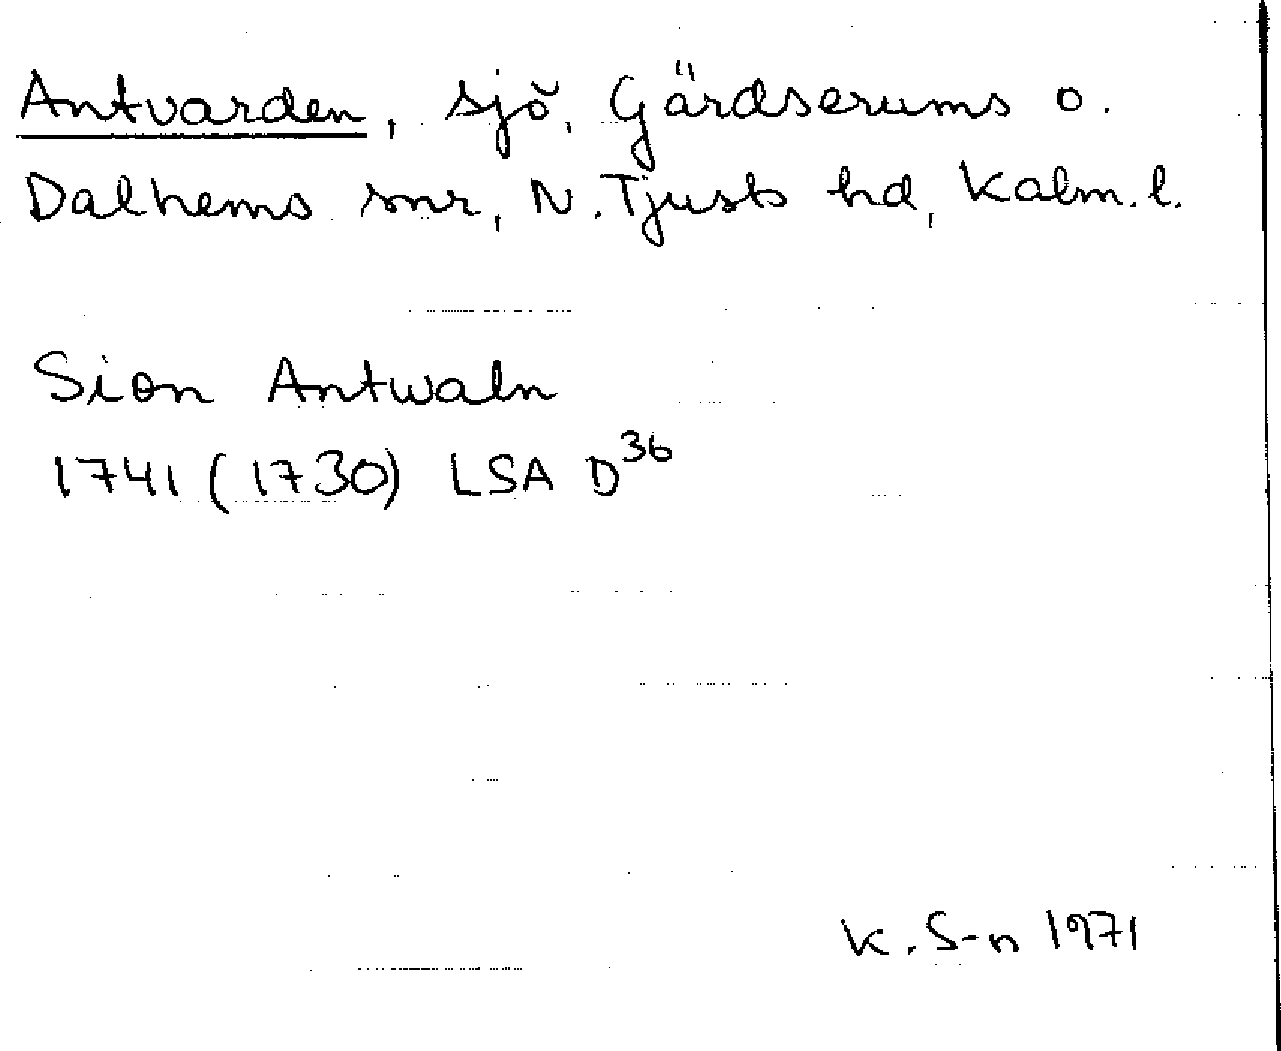 Antvarden, sjö, Gärdserums o.
Dalhems snr, N. Tjusts hd, Kalm. l.
Sion Antwaln
1741 (1730) LSA D³⁶
K. S-n 1971